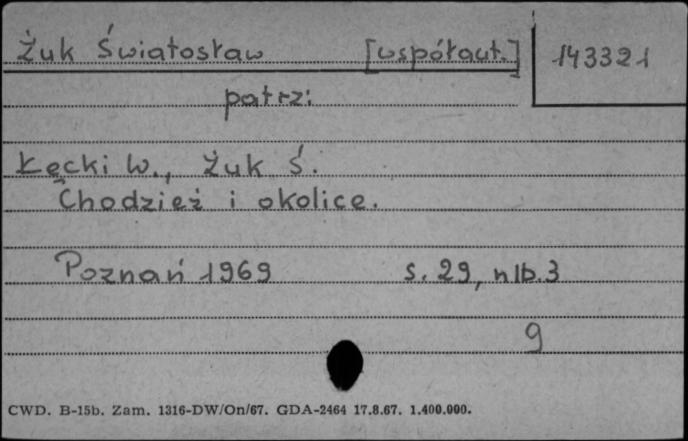 Żuk Światosław [współaut.] 143321
patrz:
Łęcki W., Żuk Ś.
Chodzież i okolice.
Poznań 1969 s. 29, nlb. 3
9
CWD. B-15b. Zam. 1316-DW/On/67. GDA-2464 17.8.67. 1.400.000.